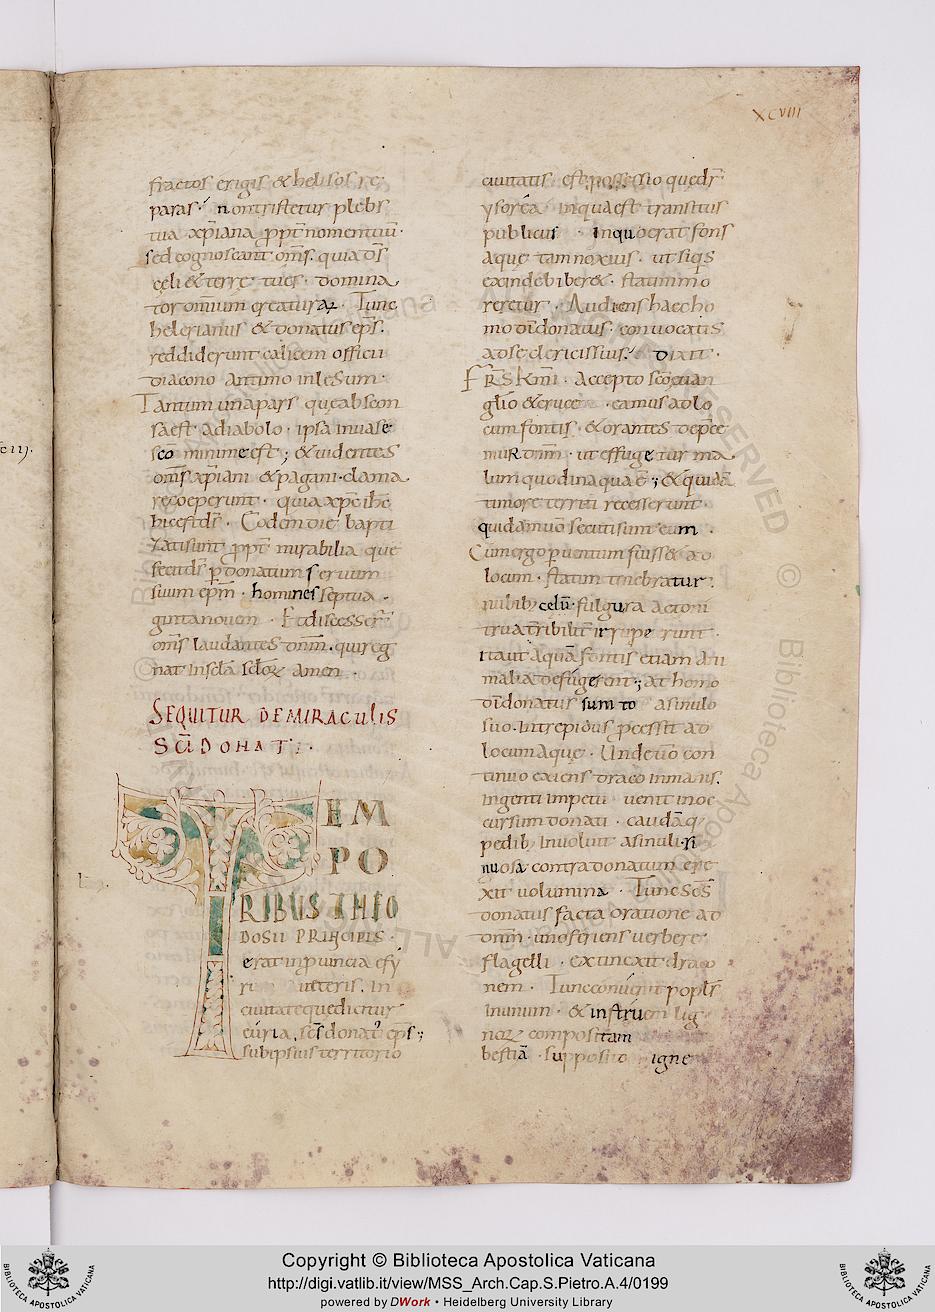 XCVIII
fractos erigis & helisos re
paras · non tristetur plebs
tua xp̄iana ꝓpt̄ nomen tuū ·
sed cognoscant om̄s · quia d̄s
cęli & terrę tu es · domina
tor omnium creaturaꝝ · Tunc
helerianus & donatus ep̄s ·
reddiderunt calicem officii
diacono antimo inlesum ·
Tantum una pars quę abscon
sa est · a diabolo · ipsa inuase
sco minime est ; & uidentes
om̄s xp̄iani & pagani · clama
re coeperunt · quia xp̄c ih̄c
hic est d̄s · Eodem die bapti
zati sunt ꝓpt̄ mirabilia que
fecit d̄s ꝑ donatum seruum
suum ep̄m · homines septua
ginta nouem · Et discesser̄
om̄s laudantes dn̄m · qui reg
nat in scl̄a scl̄oꝝ amen
SEQUITUR DE MIRACULIS
SC̄I DONATI ·
TEM
PO
RIBUS THEO
DOSII PRINCIPIS ·
erat in ꝓuincia epy
ri ueteris · In
ciuitate que dicitur
euria , sc̄s donat᾽ ep̄s ;
sub ipsius territorio
ciuitatis · est possessio quę dr̄
ysorēa · in qua est transitus
publicus · In quo erat fons
aquę tam noxius · ut siq̄s
exinde biber& · statim mo
reretur · Audiens haec ho
mo dī donatus · conuocatis
ad se clericis suis · dixit ·
FR̄S K̄mi · Accepto sc̄o euan
glīo & cruce · eamus ad lo
cum fontis · & orantes depce
mur dn̄m · ut effugetur ma
lum quod in aqua ē ; & quidā
timore territi recesserunt ·
quidam uō secuti sunt eum ·
Cum ergo ꝑuentum fuiss& ad
locum · statim tenebratur
nubibꝫ celū · fulgura ac toni
trua t̄ribilit̄ irruperunt ·
ita ut aquā fontis etiam ani
malia defugerent ; at homo
dī donatus sumto asinulo
suo · Intrepidus p̄cessit ad
locum aquę · Unde uō con
tinuo exiens draco inmanis ·
ingenti impetu uenit in oc
cursum donati · caudāqꝫ
pedibꝫ inuoluit asinuli · si
nuosa contra donatum ere
xit uolumina · Tunc sc̄s
donatus facta oratione ad
dn̄m · uno feriens uerbere
flagelli · extinxit draco
nem · Tunc conuenit popls̄
in unum · & instruem lig
noꝝ compositam
bestiā · supposito igne
Copyright © Biblioteca Apostolica Vaticana
http://digi.vatlib.it/view/MSS_Arch.Cap.S.Pietro.A.4/0199
powered by DWork • Heidelberg University Library